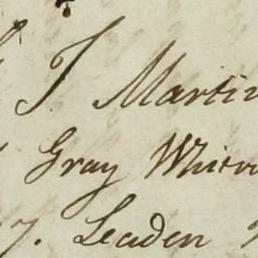 J Martin
Gray Whitr
7. Leaden